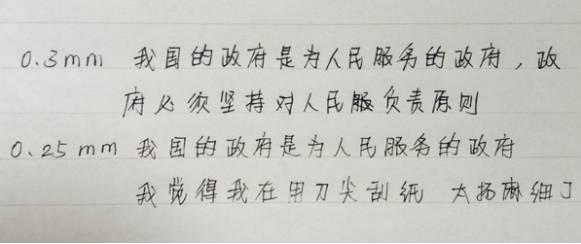 0.3mm 我国的政府是为人民服务的政府，政
府必须坚持对人民服负责原则
0.25mm 我国的政府是为人民服务的政府
我觉得我在用刀尖刮纸 太扬麻细了